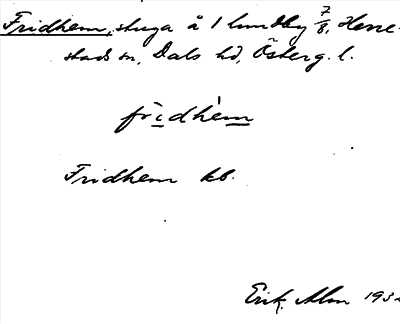 Fridhem, stuga å 1 lundby 7/8, Herre-
stads sn, Dals hd, Österg. l.
frı̀dhèm
Fridhem kb.
Erik Alm 193